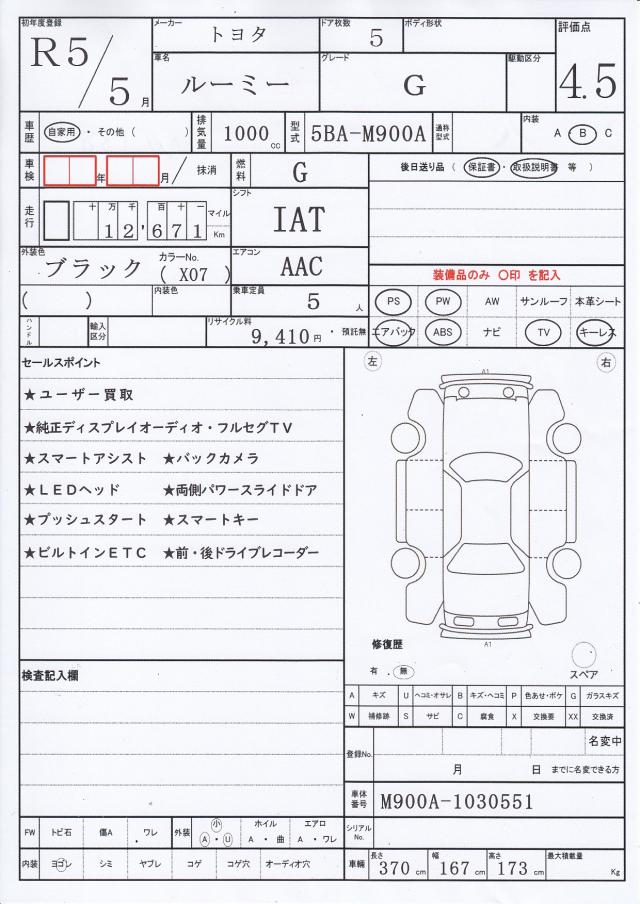 初年度登録 R5/5月
メーカー トヨタ
ドア枚数 5
ボディ形状
評価点 4.5
車名 ルーミー
グレード G
駆動区分
車歴 自家用・その他（ ）
排気量 1000 cc
型式 5BA-M900A
通称型式
内装 A・B C
車検 年 月/ 抹消
燃料 G
後日送り品（保証書・取扱説明書 等）
走行 十万千百十一 12,671 マイル Km
シフト IAT
外装色 ブラック カラーNo. (X07)
エアコン AAC
装備品のみ 〇印 を記入
( ) 内装色
乗車定員 5 人
PS PW AW サンルーフ 本革シート
エアバック ABS ナビ TV キーレス
ハンドル
輸入区分
リサイクル料 9,410円・預託無
セールスポイント
左 右
A1
★ユーザー買取
★純正ディスプレイオーディオ・フルセグTV
★スマートアシスト ★バックカメラ
★LEDヘッド ★両側パワースライドドア
★プッシュスタート ★スマートキー
★ビルトインETC ★前・後ドライブレコーダー
A1
修復歴
有.無
スペア
検査記入欄
A キズ U ヘコミ・オサレ B キズ・ヘコミ P 色あせ・ボケ G ガラスキズ
W 補修跡 S サビ C 腐食 X 交換要 XX 交換済
登録No. 名変中
月 日 までに名変できる方
車体番号 M900A-1030551
シリアルNo.
FW トビ石 傷A ワレ 外装 小 A・U ホイル A・曲 エアロ A・ワレ
内装 ヨゴレ シミ ヤブレ コゲ コゲ穴 オーディオ穴
車輌 長さ 370 cm 幅 167 cm 高さ 173 cm 最大積載量 Kg